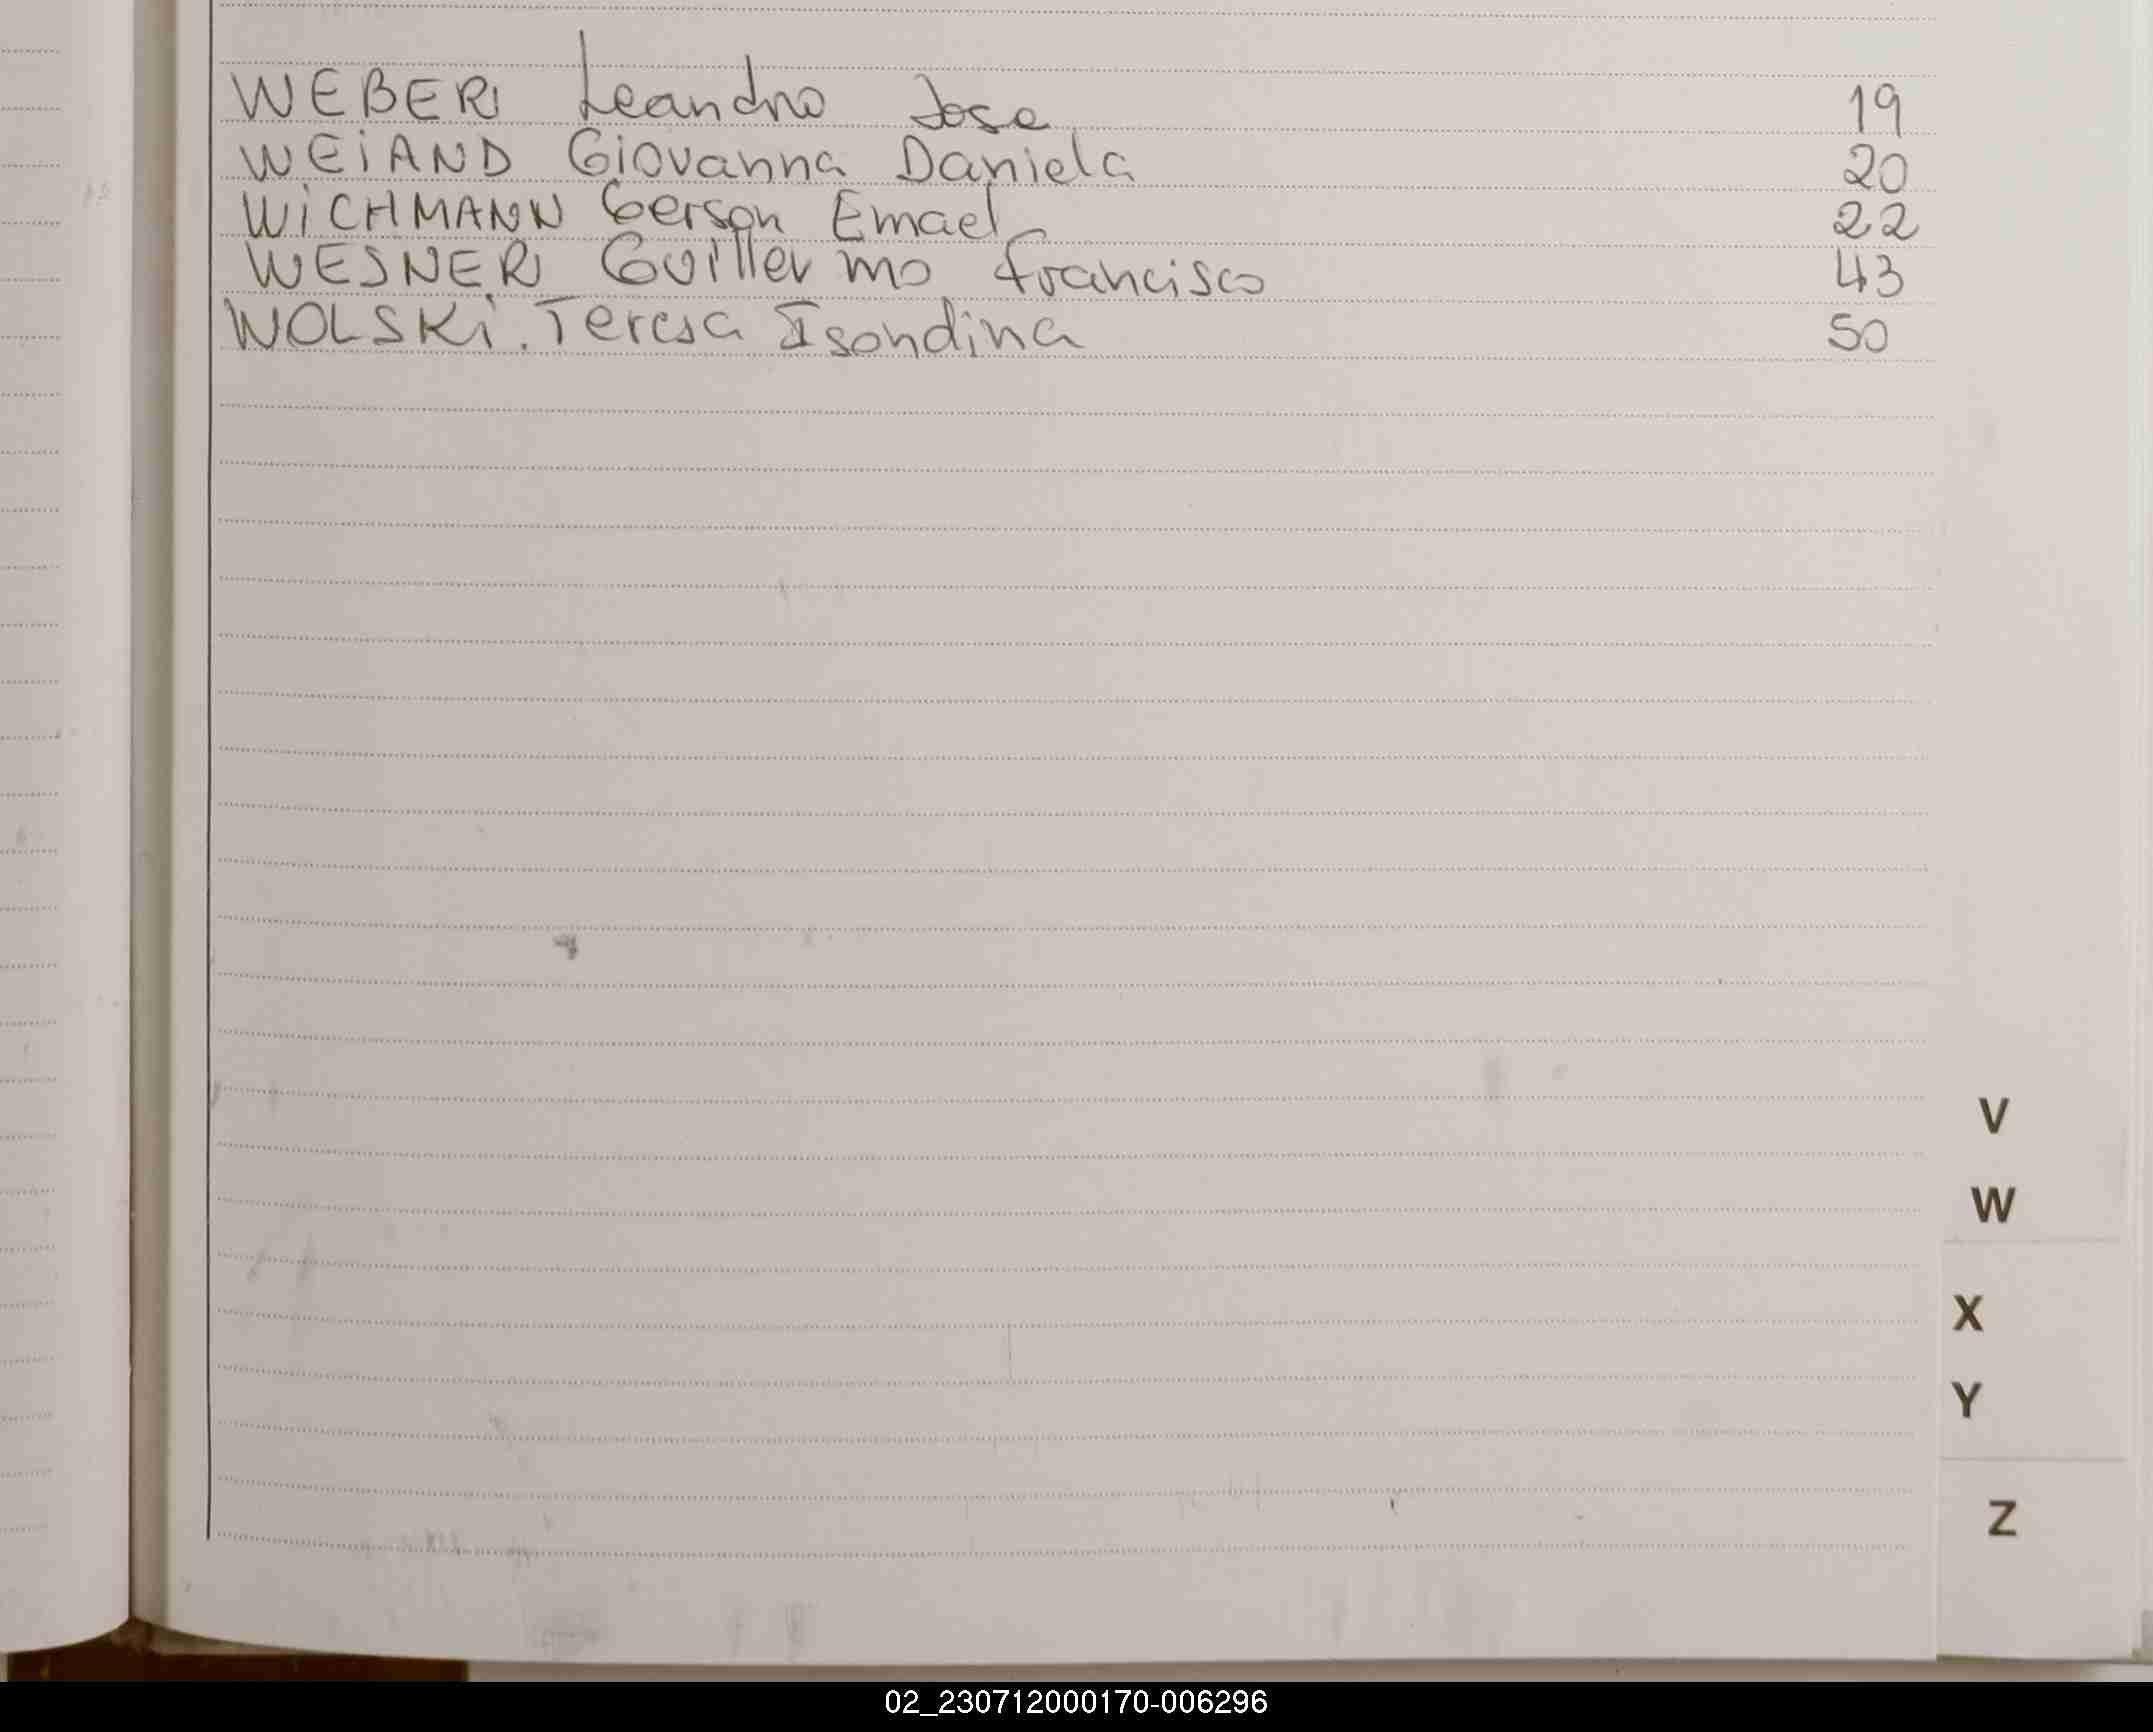 WEBER Leandro Jose 19
WEiAND Giovanna Daniela 20
WiCHMANN Gerson Emael 22
WESNER Guillermo Francisco 43
WOLSKi. Teresa Isondina 50
V
W
X
Y
Z
02_230712000170-006296